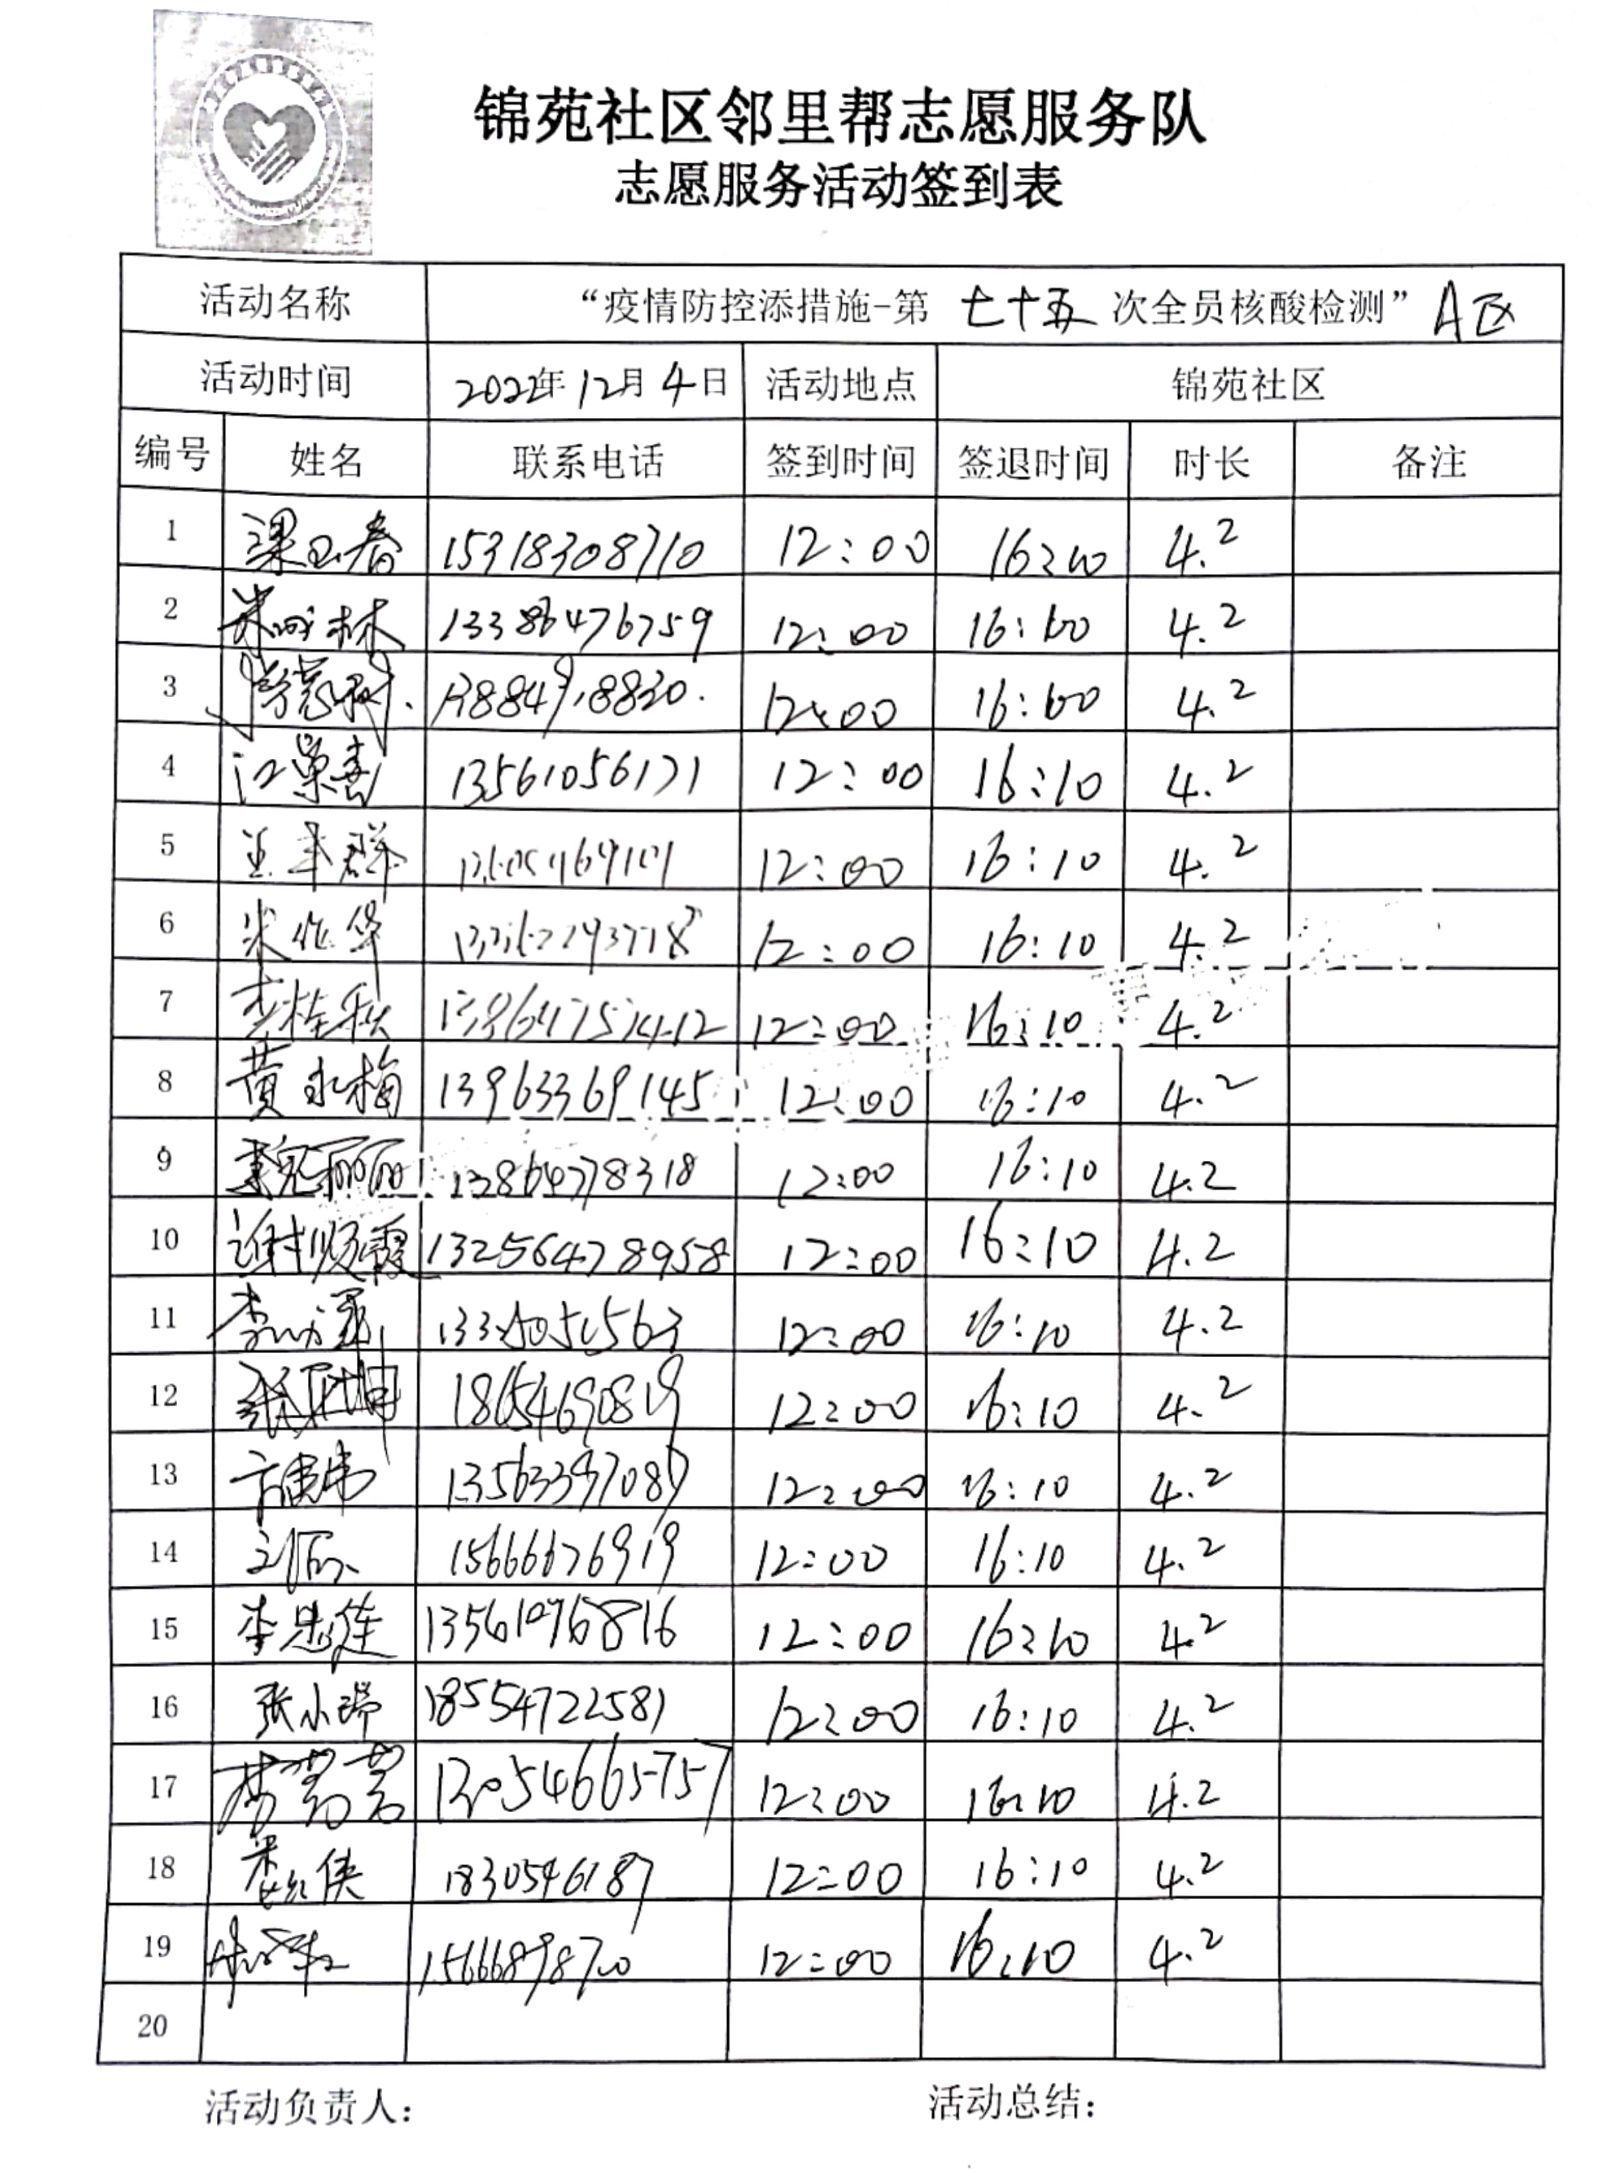 锦苑社区邻里帮志愿服务队
志愿服务活动签到表
活动名称 “疫情防控添措施-第 七十五 次全员核酸检测” A区
活动时间 2022年12月4日 活动地点 锦苑社区
编号 姓名 联系电话 签到时间 签退时间 时长 备注
1 梁玉春 15318308710 12:00 16:10 4.2
2 12:00 16:10 4.2
3 12:00 16:10 4.2
4 江荣喜 13561056171 12:00 16:10 4.2
5 12:00 16:10 4.2
6 12:00 16:10 4.2
7 李桂秋 12:00 16:10 4.2
8 黄永梅 13963369145 12:00 16:10 4.2
9 13864778318 12:00 16:10 4.2
10 谢顺霞 13256478958 12:00 16:10 4.2
11 12:00 16:10 4.2
12 18654690819 12:00 16:10 4.2
13 12:00 16:10 4.2
14 15666676919 12:00 16:10 4.2
15 李思莲 13561076816 12:00 16:10 4.2
16 张小瑞 18554722581 12:00 16:10 4.2
17 13054665757 12:00 16:10 4.2
18 1830546187 12:00 16:10 4.2
19 12:00 16:10 4.2
20
活动负责人： 活动总结：